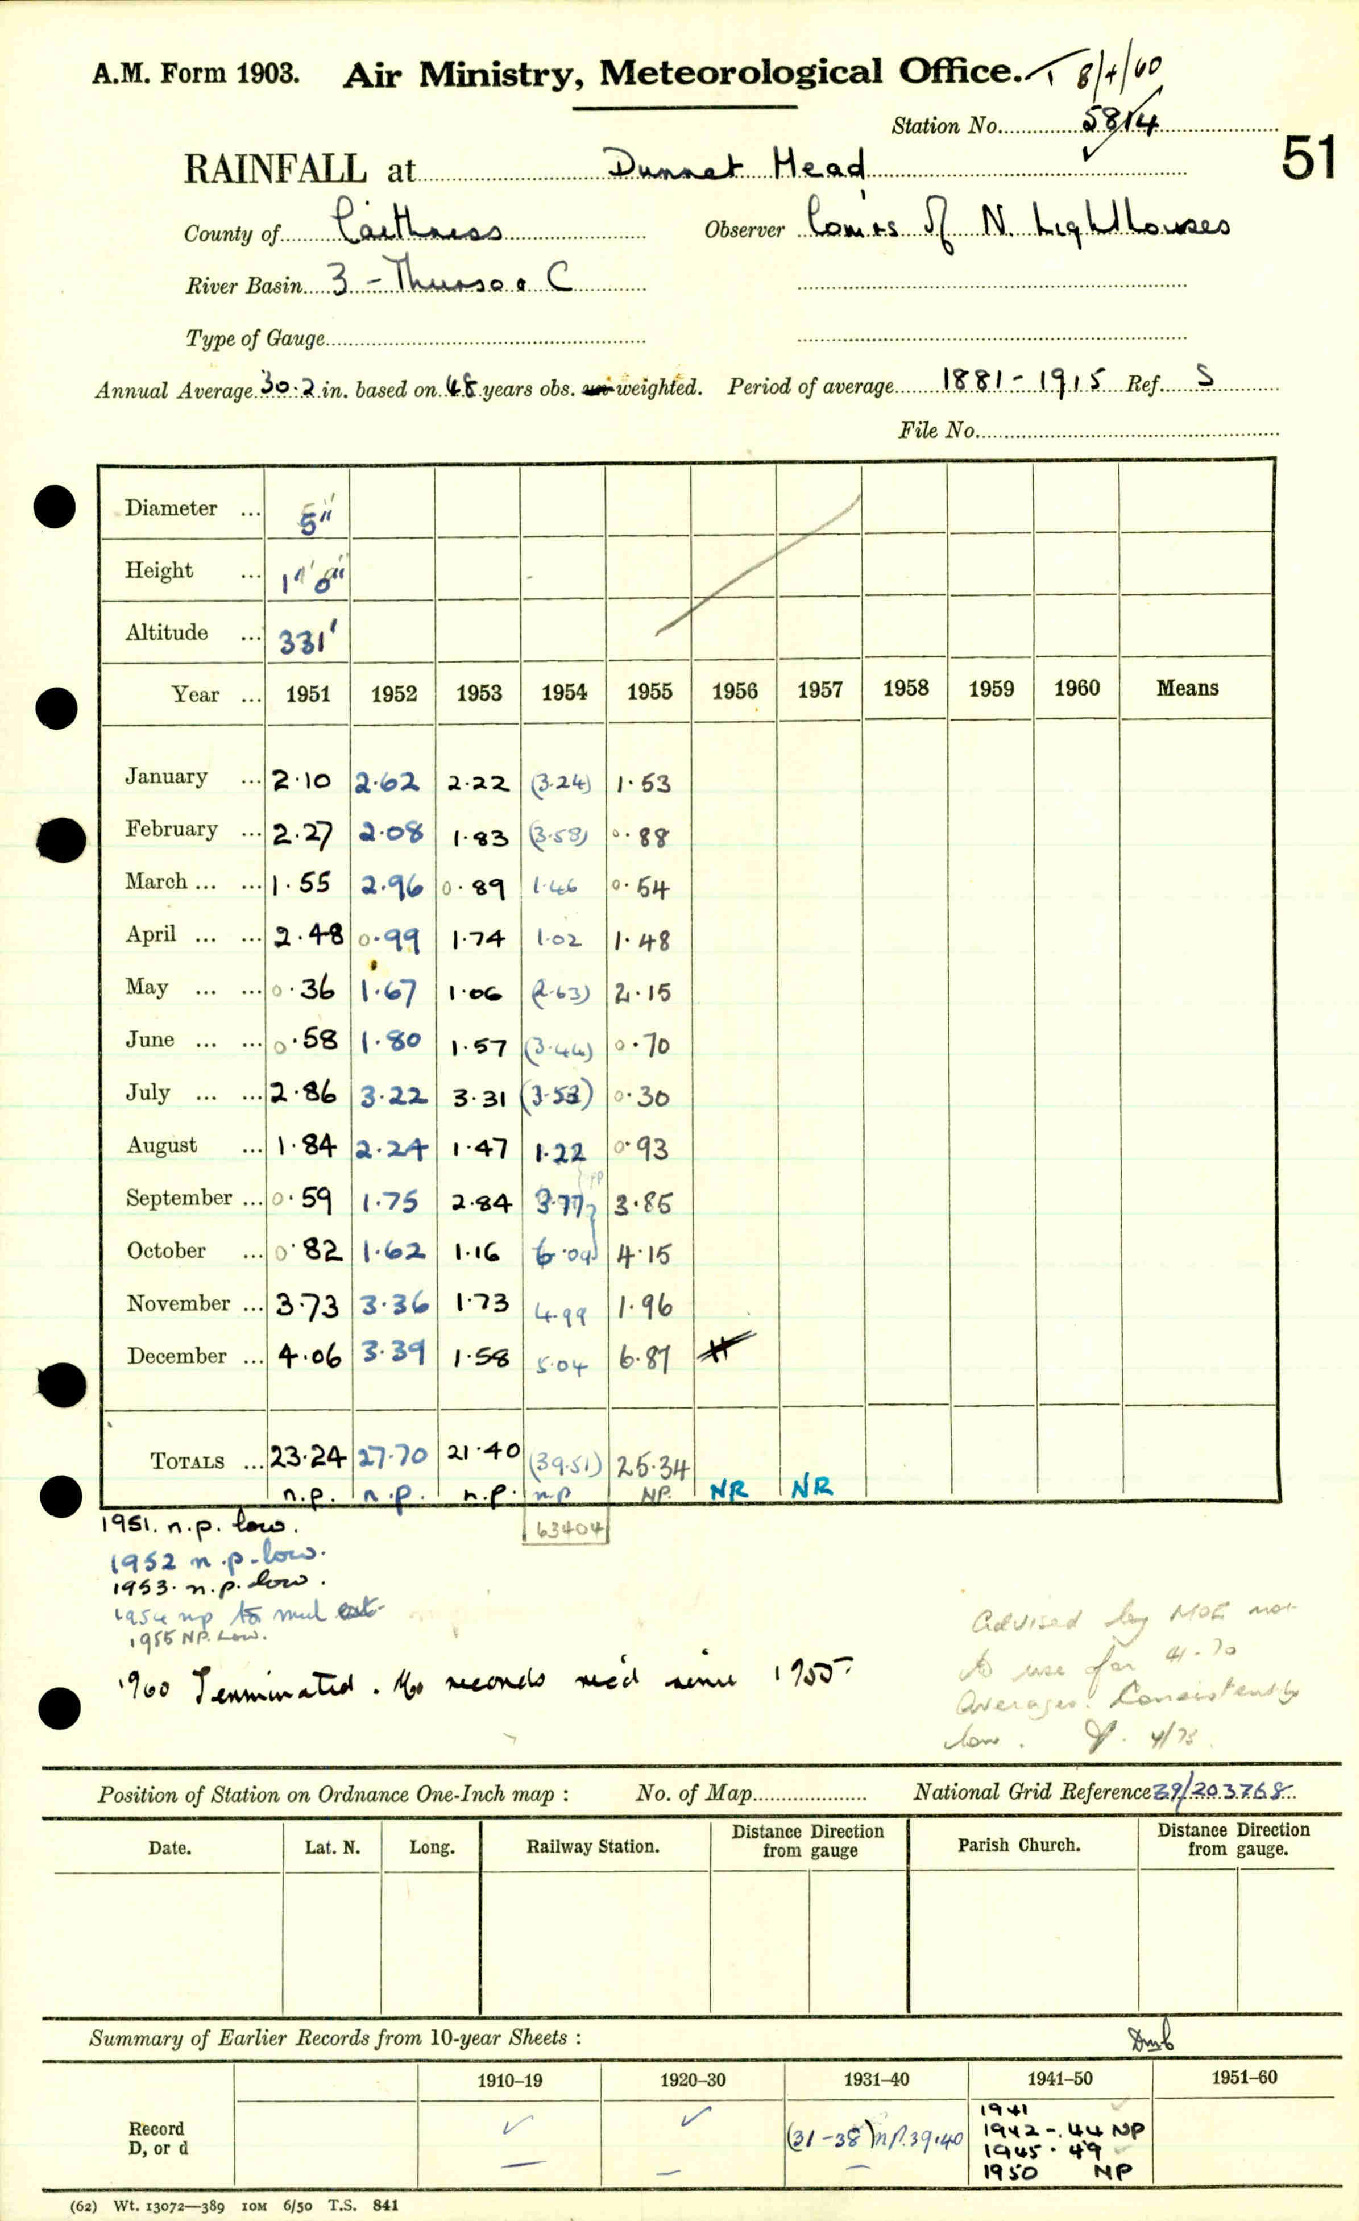 A.M. Form 1903. Air Ministry, Meteorological Office. T 8/4/60
Station No. 5814
51
RAINFALL at Dunnet Head
County of Caithness Observer Com'rs of N. Lighthouses
River Basin 3 - Thurso & C
Type of Gauge
Annual Average 30.2 in. based on 48 years obs. un-weighted. Period of average 1881-1915 Ref. S
File No.
Diameter ... 5"
Height ... 1' 0"
Altitude ... 331'
Year ... 1951 1952 1953 1954 1955 1956 1957 1958 1959 1960 Means
January ... 2.10 2.62 2.22 (3.24) 1.53
February ... 2.27 2.08 1.83 (3.58) 0.88
March ... ... 1.55 2.96 0.89 1.46 0.54
April ... ... 2.48 0.99 1.74 1.02 1.48
May ... ... 0.36 1.67 1.06 (2.63) 2.15
June ... ... 0.58 1.80 1.57 (3.44) 0.70
July ... ... 2.86 3.22 3.31 (3.53) 0.30
August ... 1.84 2.24 1.47 1.22 0.93
September ... 0.59 1.75 2.84 3.77 3.85
October ... 0.82 1.62 1.16 6.09 4.15
November ... 3.73 3.36 1.73 4.99 1.96
December ... 4.06 3.39 1.58 5.04 6.87
TOTALS ... 23.24 27.70 21.40 (39.51) 25.34
n.p. n.p. n.p. n.p NP. NR NR
63404
1951. n.p. low.
1952 n.p. low.
1953. n.p. low.
1954 np to mul est.
1955 NP. Low.
1960 Terminated. No records rec'd since 1955.
Advised by MOE not
to use for 41-70
averages. Consistently
low. 4/78.
Position of Station on Ordnance One-Inch map : No. of Map National Grid Reference 39/203768
Date. Lat. N. Long. Railway Station. Distance Direction from gauge Parish Church. Distance Direction from gauge.
Summary of Earlier Records from 10-year Sheets :
1910–19 1920–30 1931–40 1941–50 1951–60
Record
D, or d
(31-38) n.p. 39.40
1941
1942-.44 NP
1945.49
1950 NP
(62) Wt. 13072—389 10M 6/50 T.S. 841